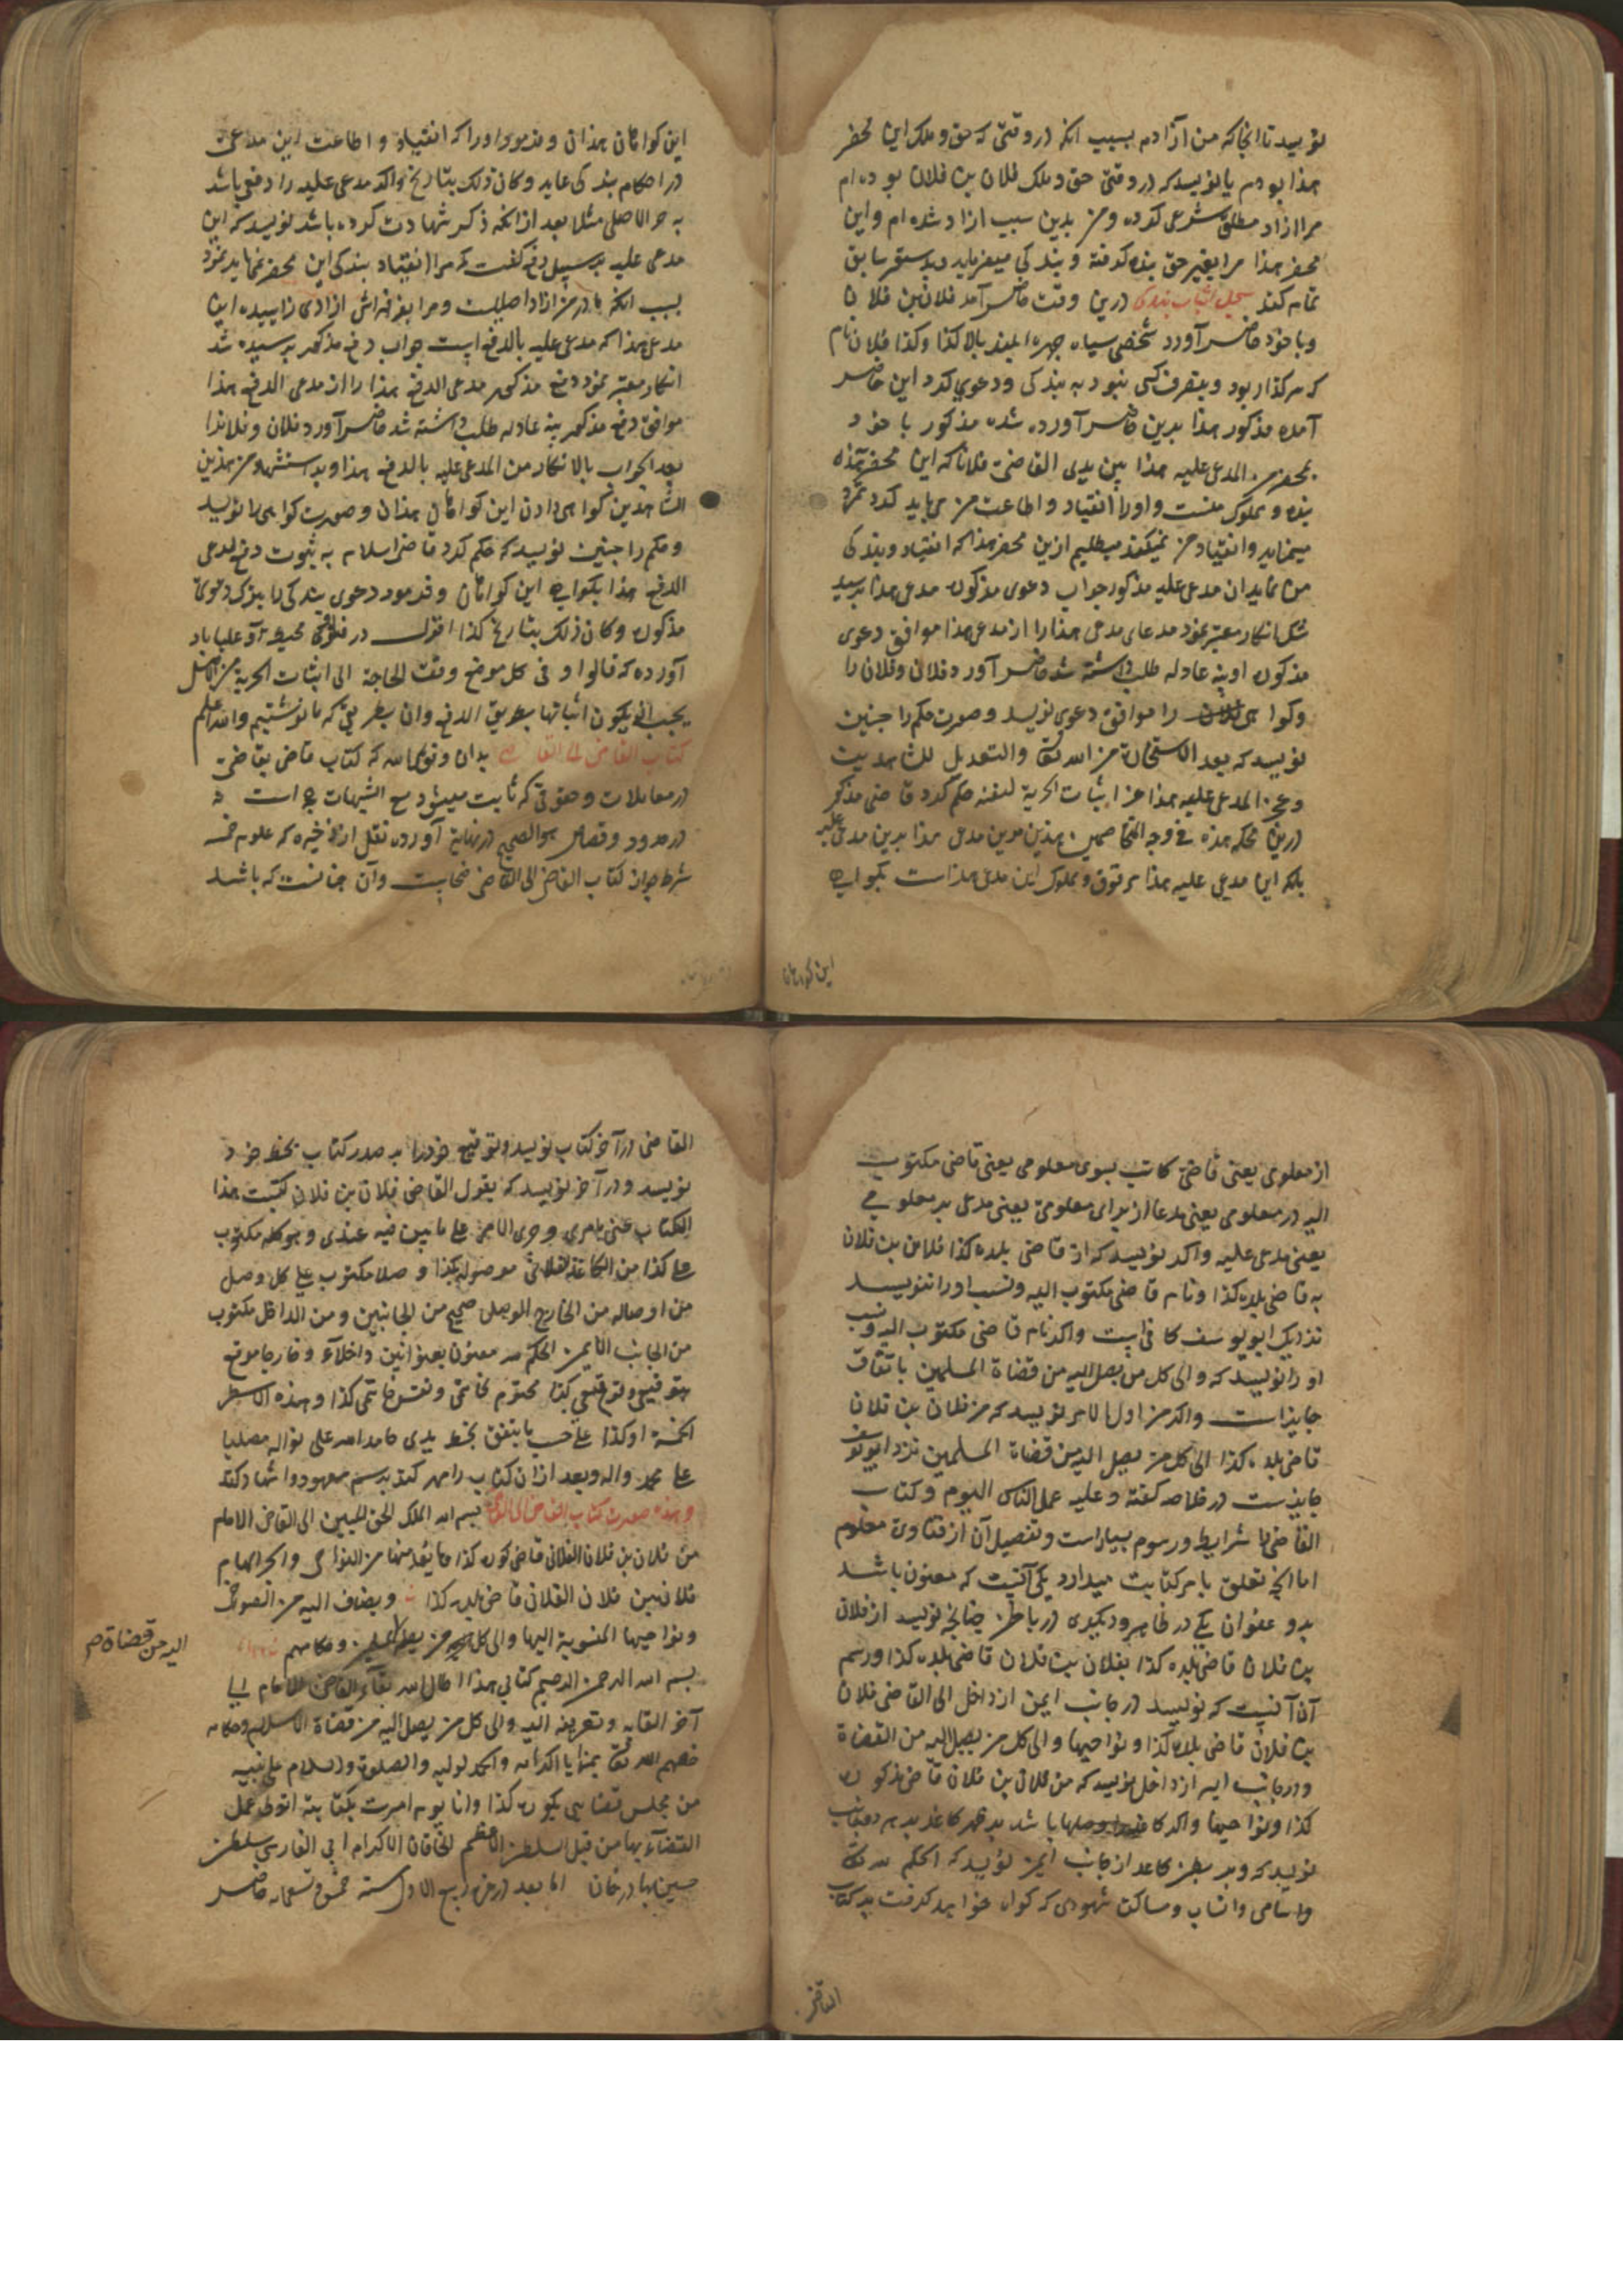 نویسد تا انجا که من آزادم بسبب انکه در وقتی که حق و ملک این محضر
هذا بودم یا نویسد که در وقتی حق و ملک فلان بن فلان بوده ام
مرا ازاد مطلق شرعی کرده و من بدین سبب ازاد شده ام و این
محضر هذا مرا بغیر حق بنده گرفته و بندکی میفرماید و بدستور سابق
تمام کند سجل اثبات بندکی درین وقت حاضر آمد فلان بن فلان
و با خود حاضر آورد شخصی سیاه چهره بلند بالا کذا و کذا فلان نام
که هر کذا ربود و بتصرف کسی نبود به بندکی و دعوی کرد این حاضر
آمده مذکور هذا بدین حاضر آورده شده مذکور با خود
بمحضر من المدعی علیه هذا بین یدی القاضی فلانا که این محضر هذه
بنده و مملوک منست و اورا انقیاد و اطاعت من می باید کرد تمرد
مینماید و انقیاد من نمیکند میطلبم ازین محضر هذا که انقیاد و بندکی
من نماید ازان مدعی علیه مذکور جواب دعوی مذکوره مدعی هذا پرسیده
شد انکار معتبر نمود مدعای مدعی هذا را از مدعی هذا موافق دعوی
مذکوره او بینه عادله طلب داشته شد حاضر آورد فلان و فلان را
و کواهی را موافق دعوی نویسد و صورت حکم را چنین
نویسد که بعد الاستخارة من الله تعالی والتعدیل للشاهدین
و عجز المدعی علیه هذا عن اثبات الحریة لنفسه حکم کرد قاضی مذکور
درین محکمه هذه فی وجه المتخاصمین هذین مرین مدعی هذا بدین مدعی علیه
بلکه این مدعی علیه هذا مرقوق و مملوک این مدعی هذا است بکواهی
این کواهان
این کواهان هذان و فرمود اورا که انقیاد و اطاعت این مدعی
در احکام بندکی نماید و کان ذلک بتاریخ و اکر مدعی علیه را دفعی باشد
به حر الاصلی مثلا بعد از انکه ذکر شهادت کرده باشد نویسد که این
مدعی علیه بر سبیل دفع گفت که مرا انقیاد بندکی این محضر نمیباید نمود
بسبب انکه مادر من ازاد اصلیست و مرا بفراش ازادی زاییده این
مدعی هذا که مدعی علیه بالدفع است جواب دفع مذکور پرسیده شد
انکار معتبر نمود دفع مذکور مدعی الدفع هذا را از مدعی الدفع هذا
موافق دفع مذکور بینه عادله طلب داشته شد حاضر آورد فلان و فلانرا
بعد الجواب بالانکار من المدعی علیه بالدفع هذا و بعد استشهاد من هذین
الشاهدین کواهی دادن این کواهان هذان و صورت کواهی را نویسد
و حکم را چنین نویسد که حکم کرد قاضی اسلام به ثبوت دفع مدعی
الدفع هذا بکواهی این کواهان و فرمود دعوی بندکی را بترک دعوی
مذکوره و کان ذلک بتاریخ کذا اقول در محیط آورده
آورده که قالوا و فی کل موضع وقعت الحاجة الی اثبات الحریة من الاصل
یجب ان یکون اثباتها بطریق الدفع و ان بطریقی که ما نوشتیم والله اعلم
کتاب القاضی الی القاضی بدان وفقک الله که کتاب قاضی بقاضی
در معاملات و حقوقی که ثابت میشود مع الشبهات است نه
در حدود و قصاص هو الصحیح در نهایه آورده نقل از ذخیره که علوم خمسه
شرط جواز کتاب القاضی الی القاضی است و آن چنانست که باشد
از معلومی یعنی قاضی کاتب بسوی معلومی یعنی قاضی مکتوب
الیه در معلومی یعنی مدعا از برای معلومی یعنی مدعی بر معلومی
یعنی مدعی علیه و اکر نویسد که از قاضی بلده کذا فلان بن فلان
به قاضی بلده کذا و نام قاضی مکتوب الیه و نسب اورا ننویسد
نزدیک ابو یوسف کافی است و اکر نام قاضی مکتوب الیه و نسب
اورا نویسد که و الی کل من یصل الیه من قضاة المسلمین باتفاق
جایز است و اکر من اول الامر نویسد که من فلان بن فلان
قاضی بلده کذا الی کل من یصل الیه من قضاة المسلمین نزد ابو یوسف
جایزست در خلاصه گفته و علیه عمل الناس الیوم و کتاب
القاضی را شرایط و رسوم بسیار است و تفصیل آن از فتاوی معلوم
اما انچه تعلق بامر کتابت میدارد یکی آنست که معنون باشد
بدو عنوان یکی در ظاهر و دیکری در باطن چنانچه نویسد از فلان
بن فلان قاضی بلده کذا بفلان بن فلان قاضی بلده کذا و رسم
آن آنست که نویسد در جانب ایمن از داخل الی القاضی فلان
بن فلان قاضی بلده کذا و نواحیها و الی کل من یصل الیه من القضاة
و در جانب ایسر از داخل نویسد که من فلان بن فلان قاضی مذکوره
کذا و نواحیها و اکر کاغذ را وصلها باشد بر ظهر کاغذ بر هر دو جانب
نویسد که و بر بطن کاغذ از جانب ایمن نویسد که الحکم لله تعالی
و اسامی و انساب و مساکن شهودی که کواه خواهد گرفت بر کتاب
القاضی
القاضی در آخر کتاب نویسد و توقیع خود را بر صدر کتاب بخط خود
نویسد و در آخر نویسد که یقول القاضی فلان بن فلان کتبت هذا
الکتاب عنی بامری و جری الامر علی ما بین فیه عندی و هو کله مکتوب
علی کذا من الکاغذ الفلانی موصولة بکذا وصلا مکتوب علی کل وصل
من اوصاله من الخارج الموصل صحیح من الجانبین و من الداخل مکتوب
من الجانب الایمن الحکم لله معنون بعنوانین داخلا و خارجا موقع
بتوقیعی و توقیعی کذا مختوم بخاتمی و نقش خاتمی کذا و هذه الاسطر
الخمسة او کذا علی حسب ما یتفق بخط یدی حامدا لله علی نواله مصلیا
علی محمد و اله و بعد ازان کتاب را مهر کند برسم معهود و اشهاد کند
و هذه صورت کتاب القاضی الی القاضی بسم الله الملک الحق المبین الی القاضی الامام
من فلان بن فلان الفلانی قاضی کوره کذا و ما یعد منها من النواحی و الی الهمام
فلان بن فلان الفلانی قاضی بلده کذا و یضاف الیه من
و نواحیها المنسوبة الیها و الی کل من یصل و حکامهم
الیه من قضاة م
بسم الله الرحمن الرحیم کتابی هذا اطال الله بقاء القاضی الامام الی
آخر القابه و تعریفه الیه و الی کل من یصل الیه من قضاة الاسلام و حکامه
خصهم الله تعالی بمزایا اکرامه و الحمد لولیه و الصلوة و السلام علی نبیه
من مجلس قضایی بکوره کذا و انا یومئذ امرت بکتابته اتولی عمل
القضاء بها من قبل السلطان الاعظم الخاقان الاکرم ابی الغازی سلطان
حسین بهادر خان اما بعد در غره ربیع الاول سنه خمس و تسعمایه حاضر